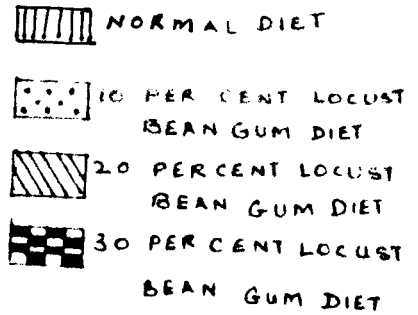 NORMAL DIET
10 PER CENT LOCUST
BEAN GUM DIET
20 PERCENT LOCUST
BEAN GUM DIET
30 PER CENT LOCUST
BEAN GUM DIET